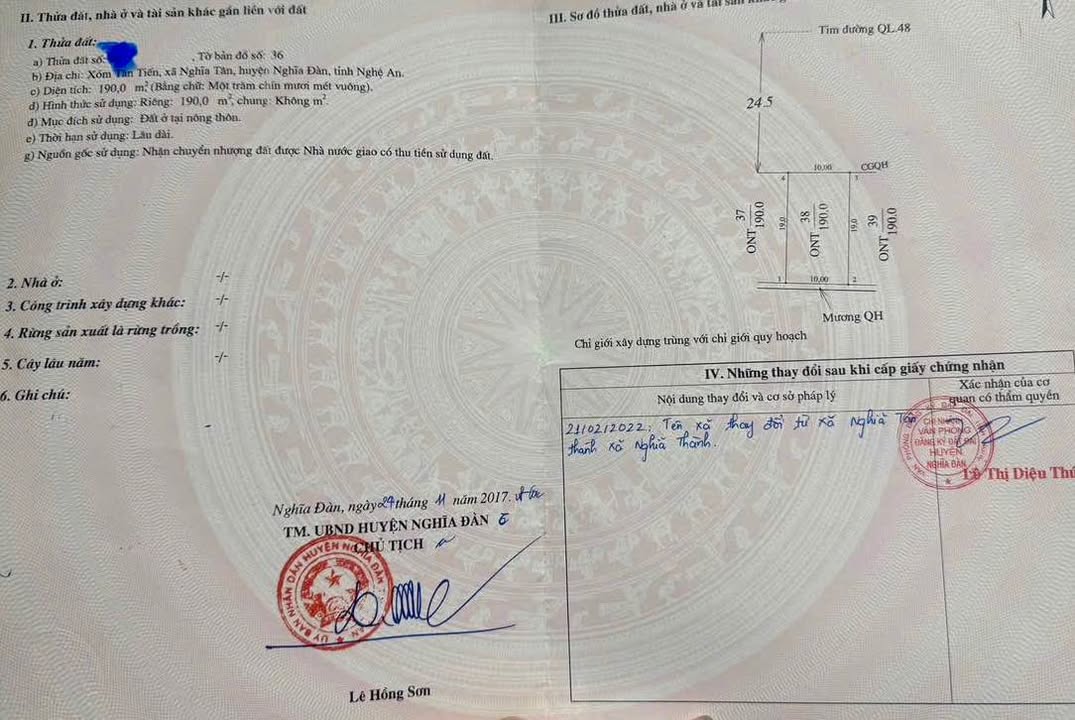 II. Thửa đất, nhà ở và tài sản khác gắn liền với đất
1. Thửa đất:
a) Thửa đất số: , Tờ bản đồ số: 36
b) Địa chỉ: Xóm Tân Tiến, xã Nghĩa Tân, huyện Nghĩa Đàn, tỉnh Nghệ An.
c) Diện tích: 190,0 m², (Bằng chữ: Một trăm chín mươi mét vuông).
d) Hình thức sử dụng: Riêng: 190,0 m², chung: Không m².
đ) Mục đích sử dụng: Đất ở tại nông thôn.
e) Thời hạn sử dụng: Lâu dài.
g) Nguồn gốc sử dụng: Nhận chuyển nhượng đất được Nhà nước giao có thu tiền sử dụng đất.
2. Nhà ở: -/-
3. Công trình xây dựng khác: -/-
4. Rừng sản xuất là rừng trồng: -/-
5. Cây lâu năm: -/-
6. Ghi chú:
Nghĩa Đàn, ngày 29 tháng 11 năm 2017.
TM. UBND HUYỆN NGHĨA ĐÀN
CHỦ TỊCH
ỦY BAN NHÂN DÂN HUYỆN NGHĨA ĐÀN
Lê Hồng Sơn
III. Sơ đồ thửa đất, nhà ở và tài sản
Tim đường QL.48
24.5
10,00
CGQH
4
3
ONT 37 190.0
19,0
ONT 38 190.0
19,0
ONT 39 190.0
1
10,00
2
Mương QH
Chỉ giới xây dựng trùng với chỉ giới quy hoạch
IV. Những thay đổi sau khi cấp giấy chứng nhận
Nội dung thay đổi và cơ sở pháp lý
Xác nhận của cơ
quan có thẩm quyền
21/02/2022: Tên xã thay đổi từ xã Nghĩa Tân
thành xã Nghĩa Thành.
CHI NHÁNH
VĂN PHÒNG
ĐĂNG KÝ ĐẤT ĐAI
HUYỆN
NGHĨA ĐÀN
Lê Thị Diệu Thú